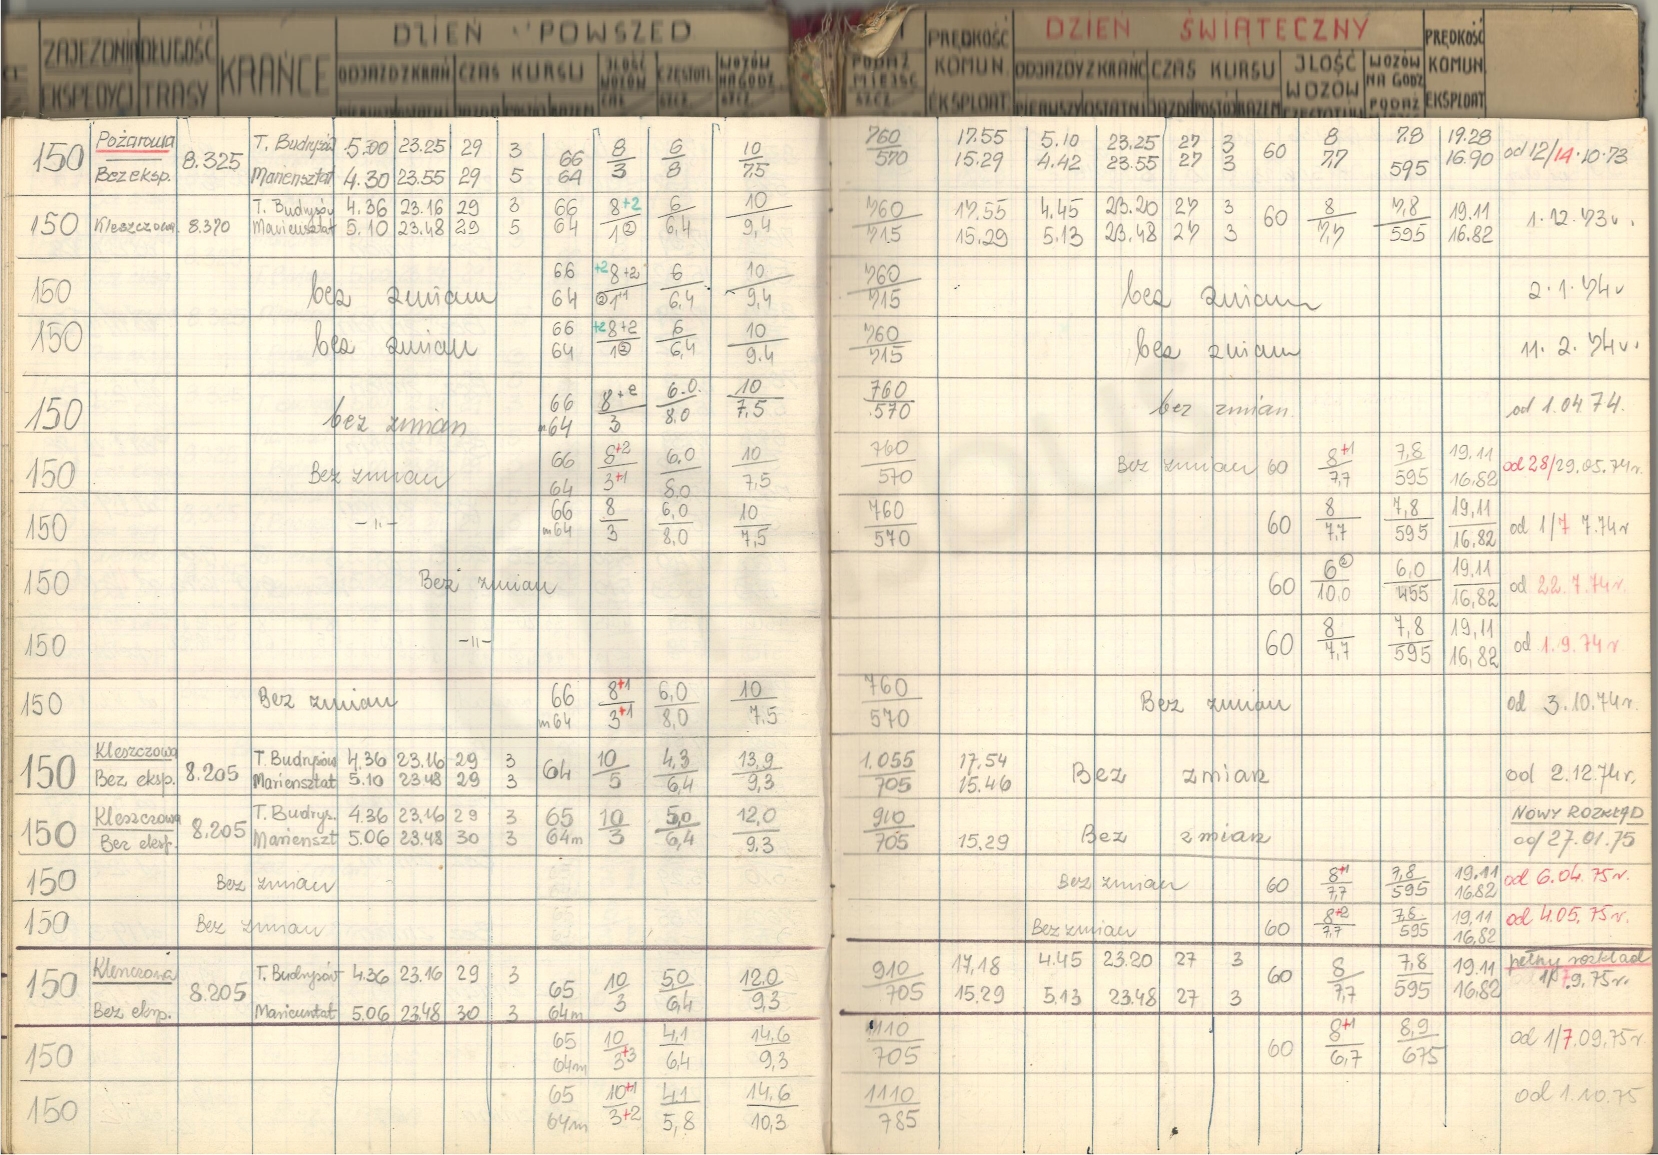 ZAJEZDNIA DŁUGOŚĆ KRAŃCE DZIEŃ POWSZED
EKSPEDYCJ TRASY ODJAZD Z KRAŃ CZAS KURSU ILOŚĆ WOZÓW CZĘSTOTL. WOZÓW NA GODZ
SZCZ. SZCZ.
PODAŻ MIEJSC SZCZ. PRĘDKOŚĆ KOMUN. EKSPLOAT. DZIEŃ ŚWIĄTECZNY PRĘDKOŚĆ KOMUN. EKSPLOAT.
ODJAZDY Z KRAŃC CZAS KURSU ILOŚĆ WOZÓW WOZÓW NA GODZ PODAŻ
PIERWSZY OSTATNI JAZDA POSTÓJ RAZEM
150 Pożarowa 8.325 T. Budrysów 5.00 23.25 29 3 66 8 6 10 760 17.55 5.10 23.25 27 3 60 8 7.8 19.28 od 12/14.10.73
Bez eksp. Mariensztat 4.30 23.55 29 5 64 3 8 7.5 570 15.29 4.42 23.55 27 3 7,7 595 16.90
150 Kleszczowa 8.370 T. Budrysów 4.36 23.16 29 3 66 8+2 6 10 760 17.55 4.45 23.20 27 3 60 8 7,8 19.11 1.12.73r.
Mariensztat 5.10 23.48 29 5 64 1② 6,4 9,4 715 15.29 5.13 23.48 27 3 7,7 595 16.82
150 bez zmian 66 +2 8+2 6 10 760 bez zmian 2.1.74r
64 6,4 9,4 715
150 bez zmian 66 +2 8+2 6 10 760 bez zmian 11.2.74r.
64 1② 6,4 9.4 715
150 bez zmian 66 6.0. 10 760 bez zmian od 1.04 74.
m64 3 8,0 7,5 570
150 Bez zmian 66 8+2 6,0 10 760 Bez zmian 60 8+1 7,8 19,11 od 28/29.05.74r.
64 3+1 8,0 7,5 570 7,7 595 16,82
150 -||- 66 8 6,0 10 760 60 8 7,8 19,11 od 1/7 7.74r
m64 3 8,0 7,5 570 7,7 595 16,82
150 Bez zmian 60 6② 6,0 19,11 od 22.7.74r.
10.0 455 16,82
150 -||- 60 8 7,8 19,11 od 1.9.74r
7,7 595 16,82
150 Bez zmian 66 8+1 6,0 10 760 Bez zmian od 3.10.74r.
m64 3+1 8,0 7,5 570
150 Kleszczowa 8.205 T. Budrysów 4.36 23.16 29 3 64 10 4,3 13,9 1.055 17,54 Bez zmian od 2.12.74r.
Bez eksp. Mariensztat 5.10 23 48 29 3 5 6,4 9,3 705 15.46
150 Kleszczowa 8.205 T. Budrys. 4.36 23,16 29 3 65 10 5,0 12,0 910 Bez zmian NOWY ROZKŁAD
Bez eksp. Marienszt 5.06 23.48 30 3 64m 3 6,4 9,3 705 15,29 od 27.01.75
150 Bez zmian Bez zmian 60 8+1 7,8 19.11 od 6.04.75r.
7,7 595 16.82
150 Bez zmian Bez zmian 60 8+2 19,11 od 4.05.75r.
7,7 595 16,82
150 8.205 T. Budrysów 4.36 23.16 29 3 65 10 5,0 12.0 910 17,18 4.45 23.20 27 3 60 8 7,8 19.11 pełny rozkład
Bez eksp. 5.06 23.48 30 3 64m 3 6,4 9,3 705 15.29 5.13 23.48 27 3 7,7 595 16,82 9.75r.
150 65 10 4,1 14,6 1110 60 8+1 8,9 od 1/7.09.75r
64m 3+3 6,4 9,3 705 6,7 675
150 65 10+1 4,1 14,6 1110 od 1.10.75
64m 3+2 5,8 10,3 785